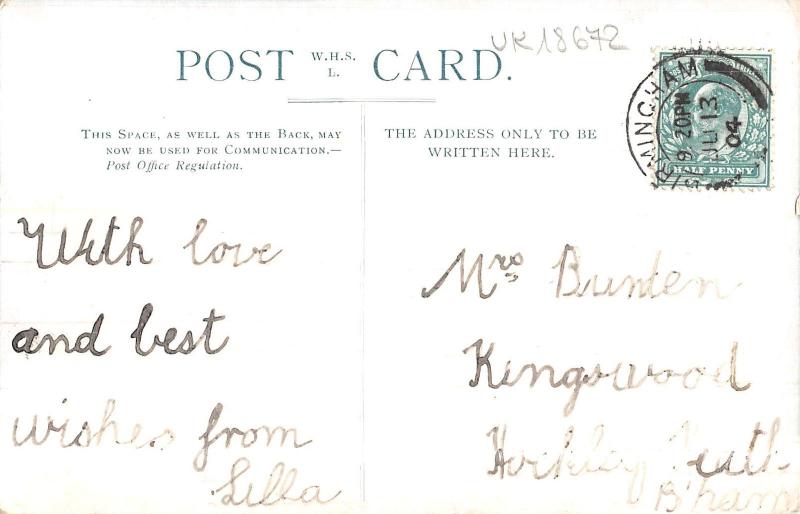 UK18672
POST W.H.S. L. CARD.
THIS SPACE, AS WELL AS THE BACK, MAY
NOW BE USED FOR COMMUNICATION.—
Post Office Regulation.
THE ADDRESS ONLY TO BE
WRITTEN HERE.
BIRMINGHAM
9 20PM
JU 13
04
HALF PENNY
With love
and best
wishes from
Lilla
Mrs Brinten
Kingswood
Hockley Heath
B'ham